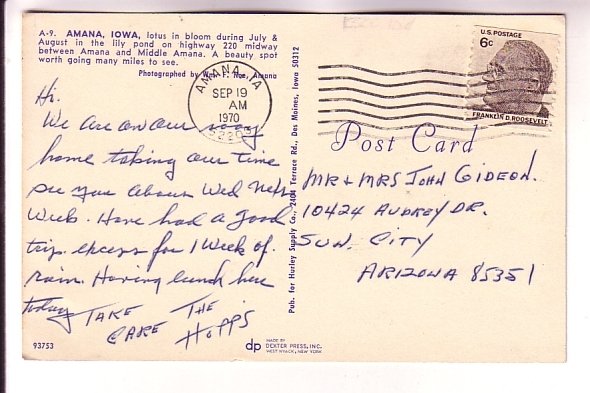 A-9. AMANA, IOWA, lotus in bloom during July &
August in the lily pond on highway 220 midway
between Amana and Middle Amana. A beauty spot
worth going many miles to see.
Photographed by Amana
AMANA, IA
SEP 19
AM
1970
U.S. POSTAGE
6c
FRANKLIN D. ROOSEVELT
Post Card
Hi.
We are on our way
home taking our time
see you about Wed next
Week. Have had a good
trip. except for 1 Week of
rain. Having lunch here
today TAKE THE
CARE HOPPS
Pub. for Hurley Supply Co., 2404 Terrace Rd., Des Moines, Iowa 50312
MR + MRS JOHN GIDEON.
10424 AUDREY DR.
SUN CITY
ARIZONA 85351
93753
dp
MADE BY
DEXTER PRESS, INC.
WEST NYACK, NEW YORK